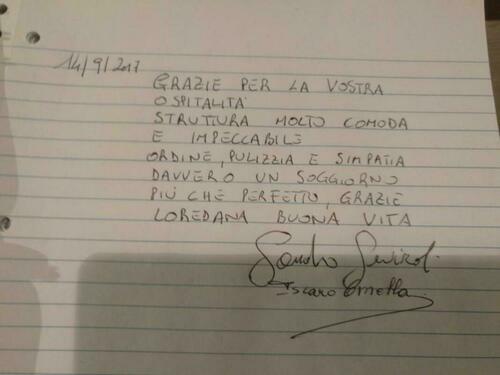 14/9/2017
GRAZIE PER LA VOSTRA
OSPITALITA'
STRUTTURA MOLTO COMODA
E IMPECCABILE
ORDINE, PULIZZIA E SIMPATIA
DAVVERO UN SOGGIORNO
PIÙ CHE PERFETTO, GRAZIE
LOREDANA BUONA VITA
Ornella